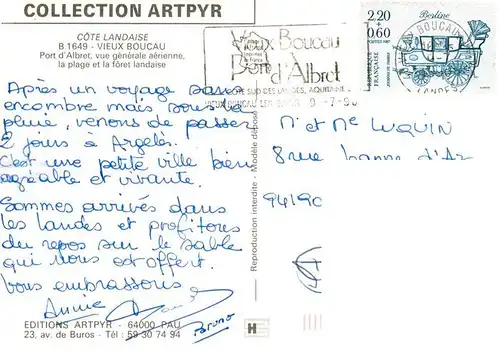 COLLECTION ARTPYR
CÔTE LANDAISE
B.1649 - VIEUX BOUCAU
Port d'Albret, vue générale aérienne,
la plage et la fôret landaise
Après un voyage sans
encombre mais sous la
pluie, venons de passer
2 jours à Argelès.
C'est une petite ville bien
agréable et vivante.
Sommes arrivés dans
les Landes et profitons
du repos sur le sable
qui nous est offert.
Vous embrassons
Annie
Bruno
EDITIONS ARTPYR - 64000 PAU
23, av. de Buros - Tél : 59 30 74 94
Reproduction interdite - Modèle déposé
Vieux Boucau
Port d'Albret
SUD DES LANDES, AQUITAINE
9-7-90
2,20
+0,60
Berline
REPUBLIQUE FRANÇAISE
JOURNEE DU TIMBRE
LANDES
M et Me LUQUIN
8 rue Jeanne d'Ar
94190